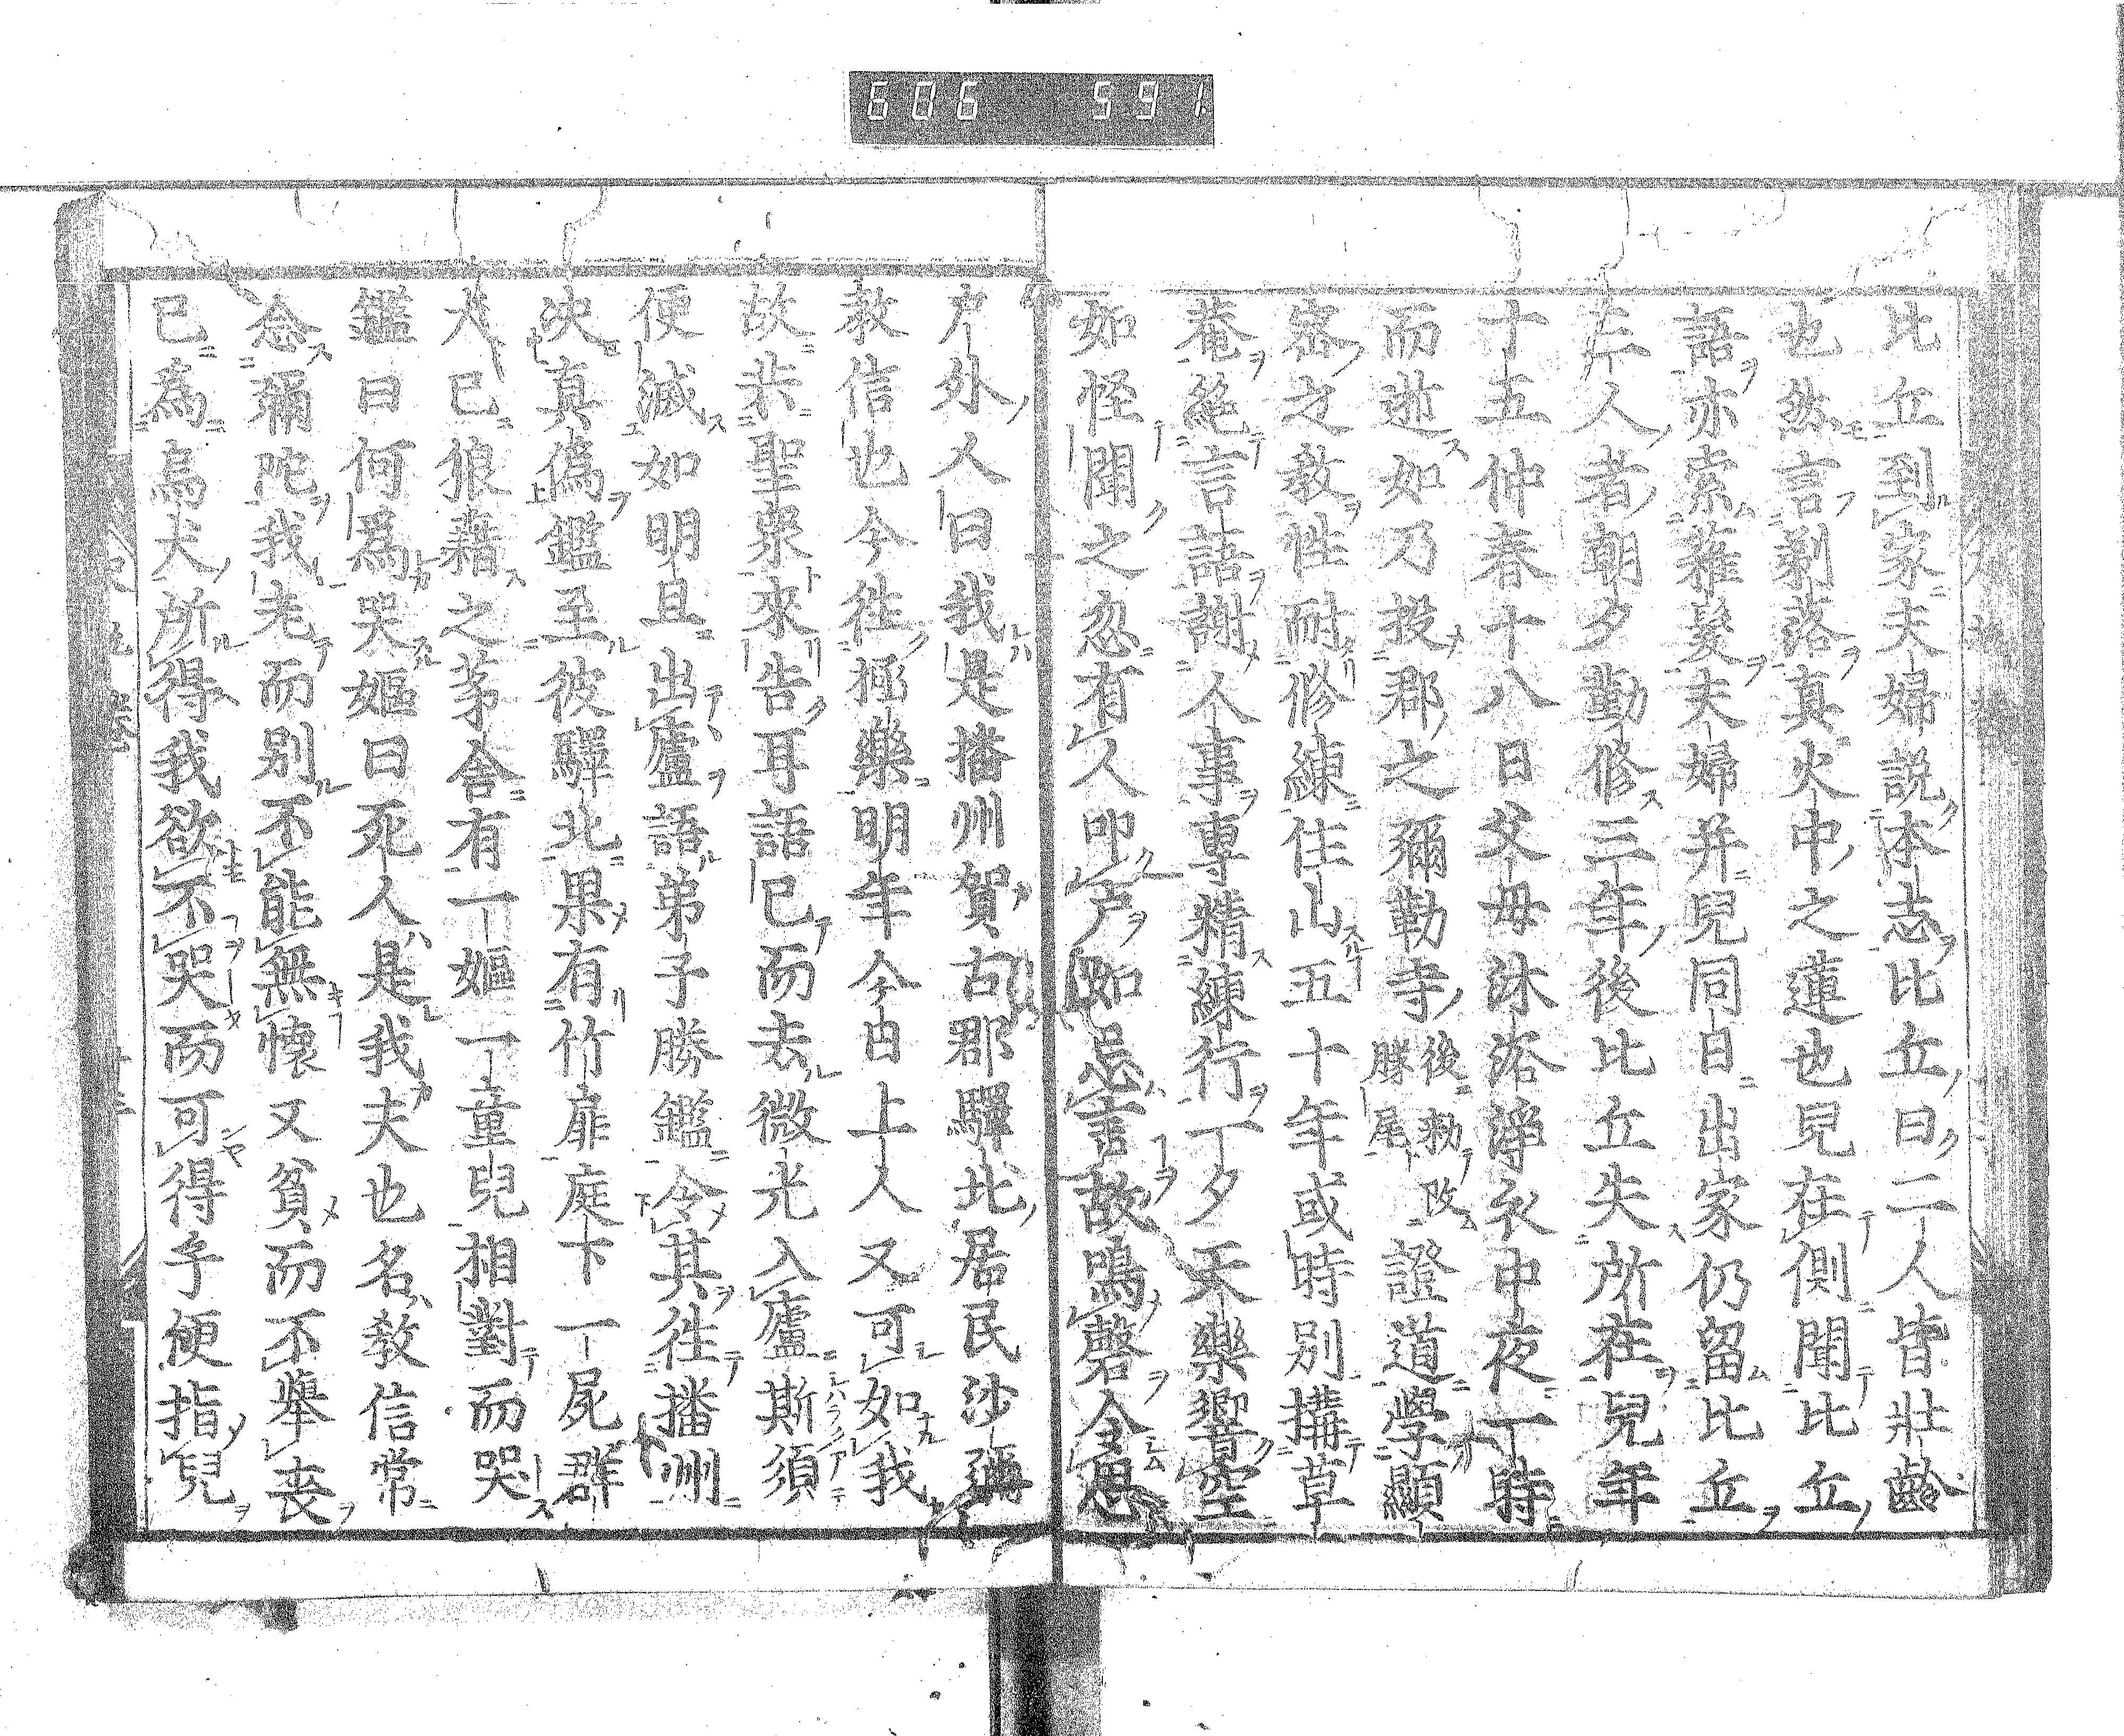 606 591
比丘到家夫婦説本志比丘曰二人皆壯齡
也然言剃落真火中之蓮也兒在側聞比丘
語亦索薙髮夫婦并兒同日出家仍留比丘
三人者朝夕勤修三年後比丘失所在兒年
十五仲春十八日父母沐浴淨衣中夜一時
而逝如乃投郡之彌勒寺後勅改勝尾證道學顯
密之教性耐修練住山五十年或時別搆草
菴絶言語謝人事專精練行一夕天樂響空
如怪聞之忽有人叩户如忌言故鳴磬令思
户外人曰我是播州賀古郡驛北居民沙彌
教信也今徃極樂明年今日上人又可如我
故共聖衆來告耳語已而去微光入廬斯須
便滅如明旦出廬語弟子勝鑑令其徃播州
決真僞鑑至彼驛北果有竹扉庭下一屍群
犬已狼藉之茅舎有一嫗一童兒相對而哭
鑑曰何爲哭嫗曰死人是我夫也名教信常
念彌陀我老而別不能無懷又貧而不擧喪
已爲烏犬所得我欲不哭而可得乎便指兒